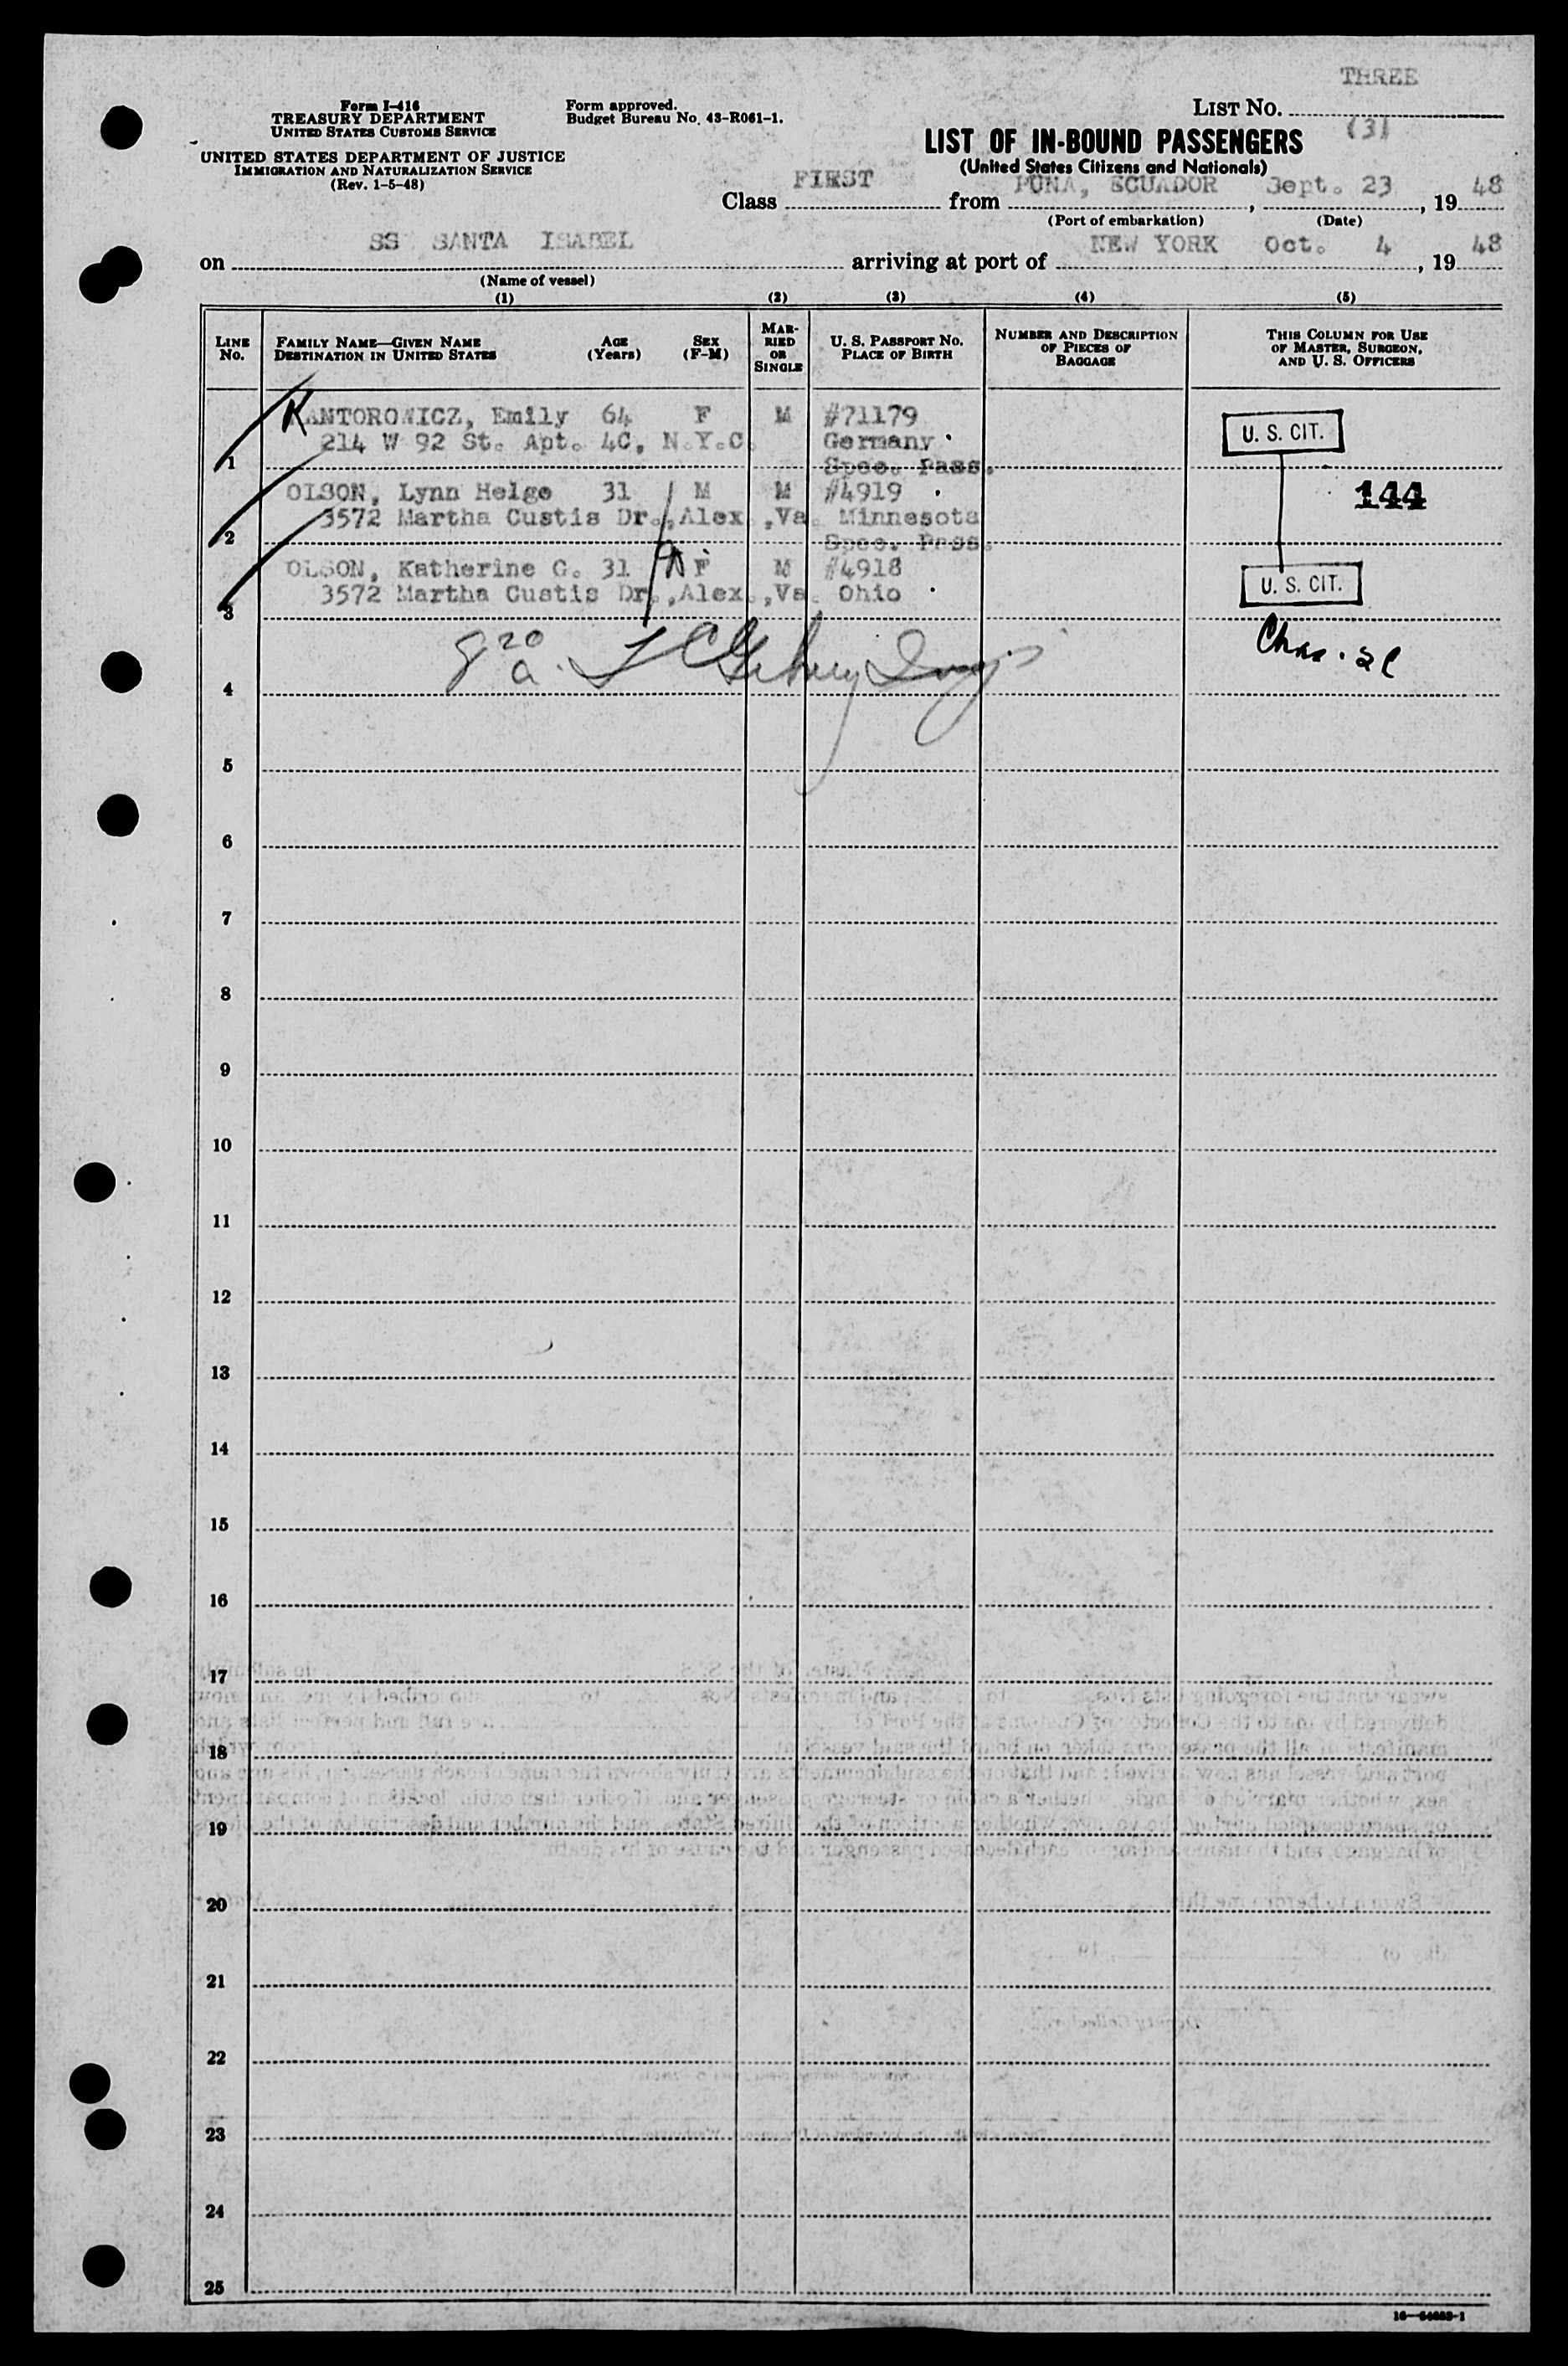 THREE
Form I-416
TREASURY DEPARTMENT
UNITED STATES CUSTOMS SERVICE
Form approved.
Budget Bureau No. 43-R061-1.
LIST No.
(3)
UNITED STATES DEPARTMENT OF JUSTICE
IMMIGRATION AND NATURALIZATION SERVICE
(Rev. 1-5-48)
LIST OF IN-BOUND PASSENGERS
(United States Citizens and Nationals)
Class FIRST from PUNA, ECUADOR, Sept. 23, 1948
(Port of embarkation) (Date)
on SS SANTA ISABEL arriving at port of NEW YORK Oct. 4, 1948
(Name of vessel)
(1) (2) (3) (4) (5)
LINE No.
FAMILY NAME—GIVEN NAME
DESTINATION IN UNITED STATES
AGE (Years)
SEX (F-M)
MARRIED OR SINGLE
U. S. PASSPORT No.
PLACE OF BIRTH
NUMBER AND DESCRIPTION OF PIECES OF BAGGAGE
THIS COLUMN FOR USE OF MASTER, SURGEON, AND U. S. OFFICERS
KANTOROWICZ, Emily 64 F M #71179
214 W 92 St. Apt. 4C, N.Y.C. Germany
U. S. CIT.
1 Spec. Pass.
OLSON, Lynn Helge 31 M M #4919
144
3572 Martha Custis Dr., Alex., Va. Minnesota
2 Spec. Pass.
OLSON, Katherine G. 31 F M #4918
3572 Martha Custis Dr., Alex., Va. Ohio
U. S. CIT.
3
8 20 a.
4
5
6
7
8
9
10
11
12
13
14
15
16
17
18
19
20
21
22
23
24
25